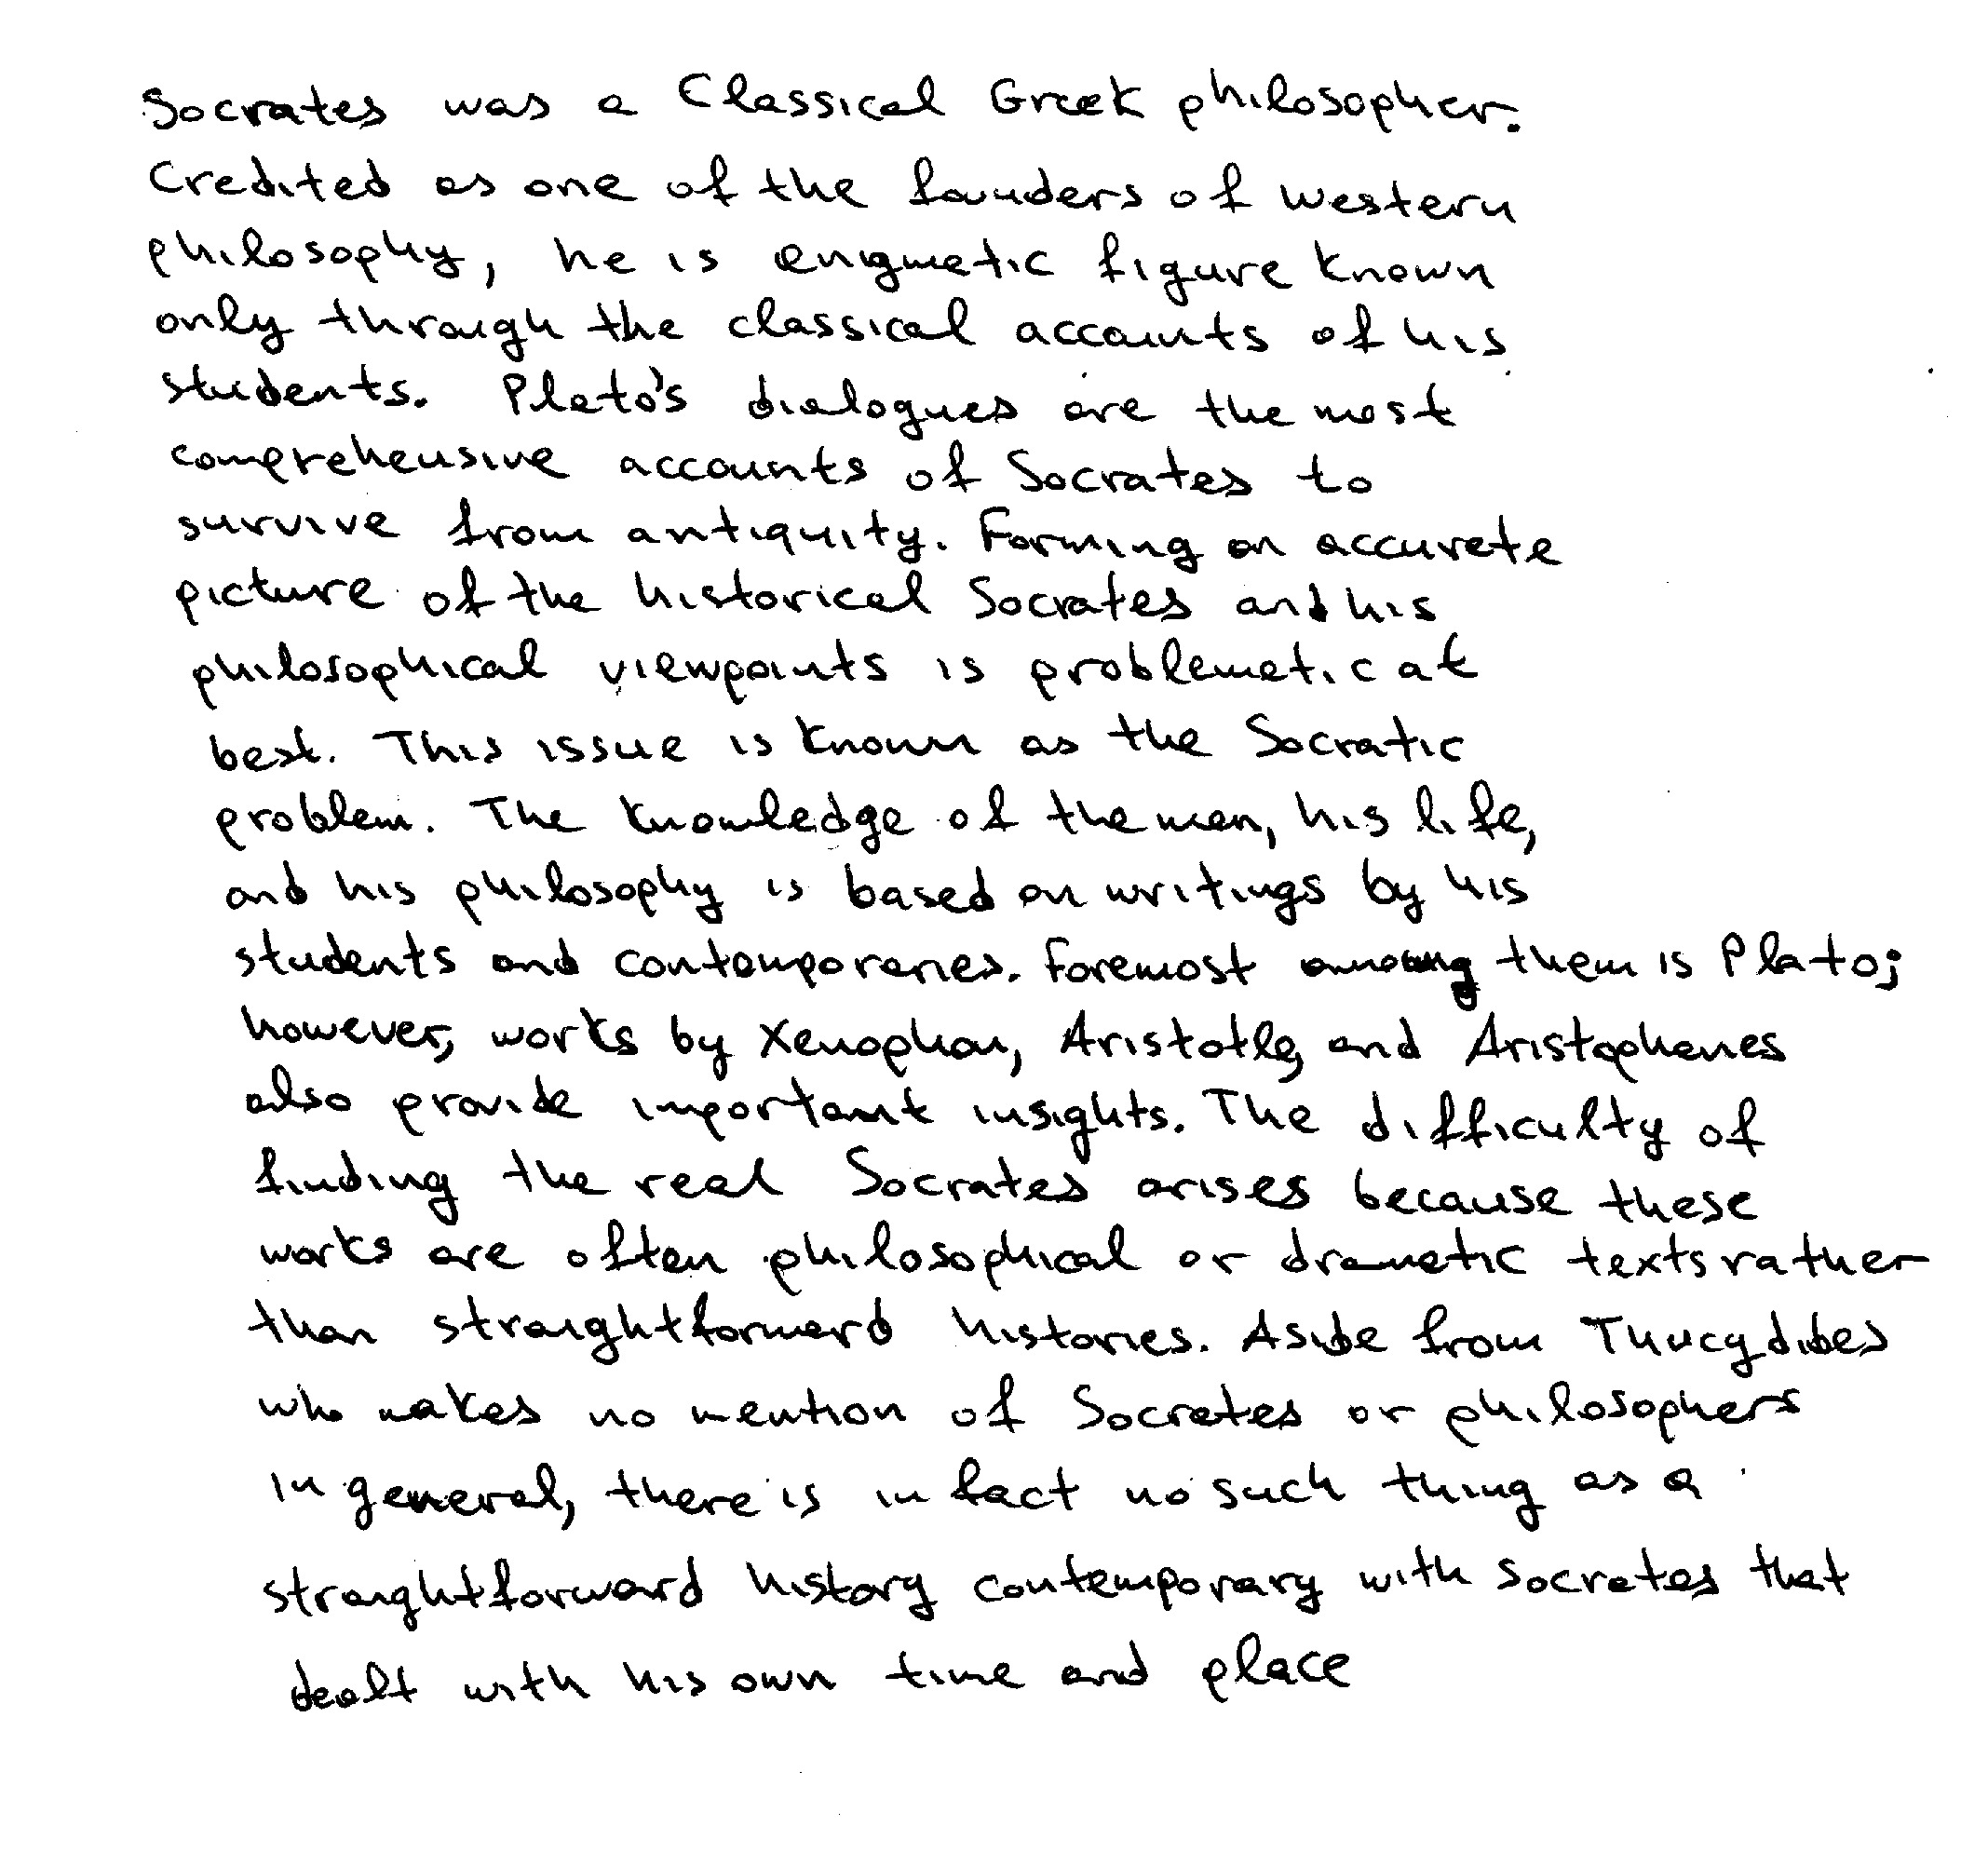 Socrates was a Classical Greek philosopher.
Credited as one of the founders of western
philosophy, he is enigmatic figure known
only through the classical accounts of his
students. Plato's dialogues are the most
comprehensive accounts of Socrates to
survive from antiquity. Forming an accurate
picture of the historical Socrates and his
philosophical viewpoints is problematic at
best. This issue is known as the Socratic
problem. The knowledge of the man, his life,
and his philosophy is based on writings by his
students and contemporaries. Foremost among them is Plato;
however, works by Xenophon, Aristotle, and Aristophanes
also provide important insights. The difficulty of
finding the real Socrates arises because these
works are often philosophical or dramatic texts rather
than straightforward histories. Aside from Thucydides
who makes no mention of Socrates or philosophers
in general, there is in fact no such thing as a
straightforward history contemporary with Socrates that
dealt with his own time and place